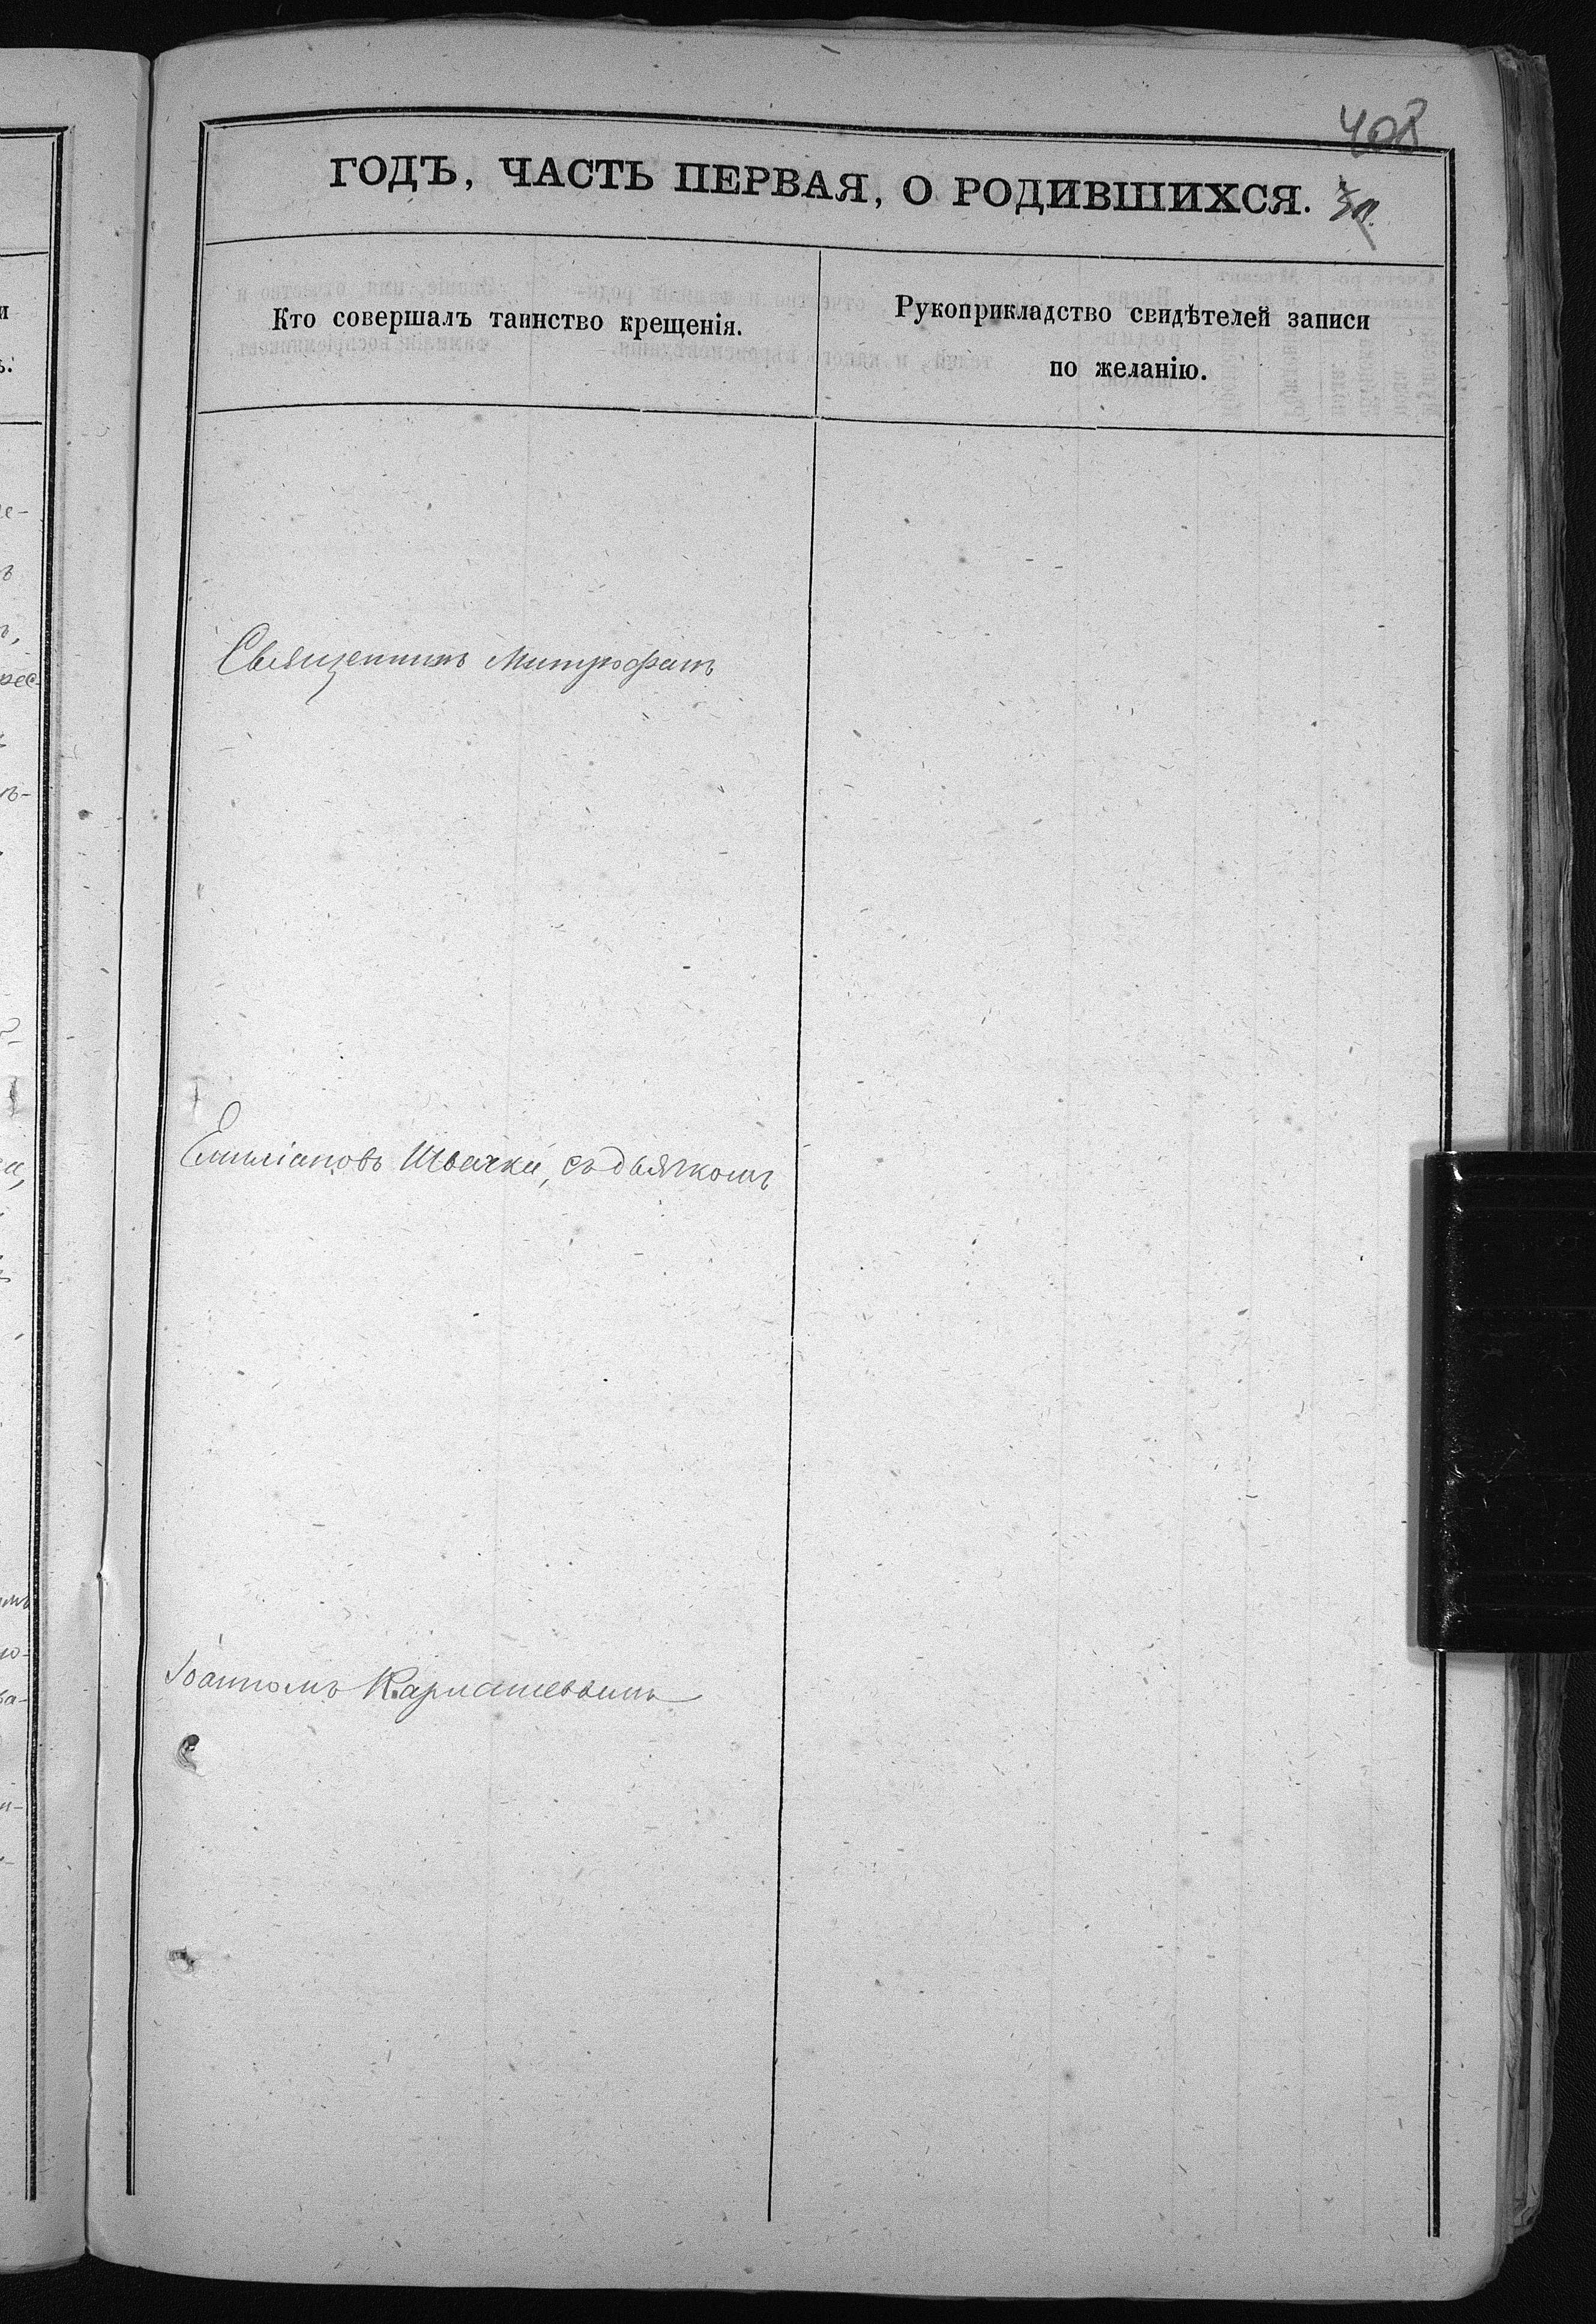 408
ГОДЪ, ЧАСТЬ ПЕРВАЯ, О РОДИВШИХСЯ.
Кто совершалъ таинство крещенія.
Рукоприкладство свидѣтелей записи
по желанію.
Священникъ Митрофанъ
Емиліановъ Швачка, съ дьячкомъ
Іоанномъ